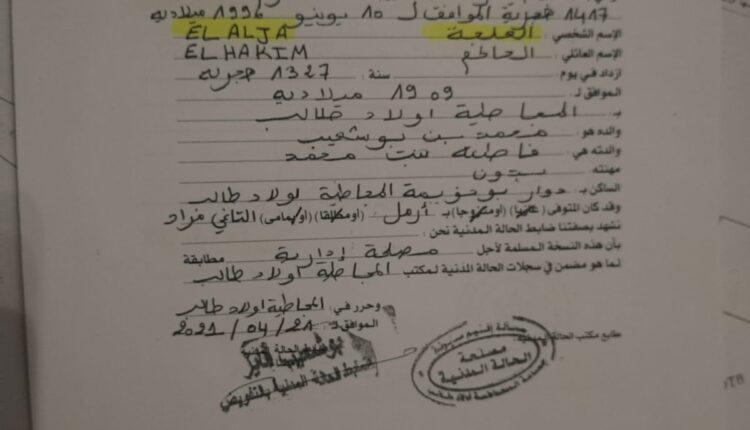 1417 هجرية الموافق لـ 10 يونيو 1996 ميلادية
الإسم الشخصي : EL ALJA
الإسم العائلي : الحاكم EL HAKIM
ازداد في يوم سنة : 1327 هجرية
الموافق لـ 1909 ميلادية
بـ المعاطية اولاد طالب
والده هو : محمد بن بوشعيب
والدته هي : فاطمة بنت محمد
مهنته : بدون
الساكن بـ دوار المعاطية اولاد طالب
وقد كان المتوفى بـ أرمل
نشهد بصفتنا ضابط الحالة المدنية نحن :
بأن هذه النسخة المسلمة لأجل مصلحة إدارية مطابقة
لما هو مضمن في سجلات الحالة المدنية لمكتب المعاطية اولاد طالب
وحرر في : المعاطية اولاد طالب
الموافق لـ 2021/04/21
طابع مكتب الحالة المدنية
مصلحة
الحالة المدنية
ضابط الحالة المدنية بالتفويض